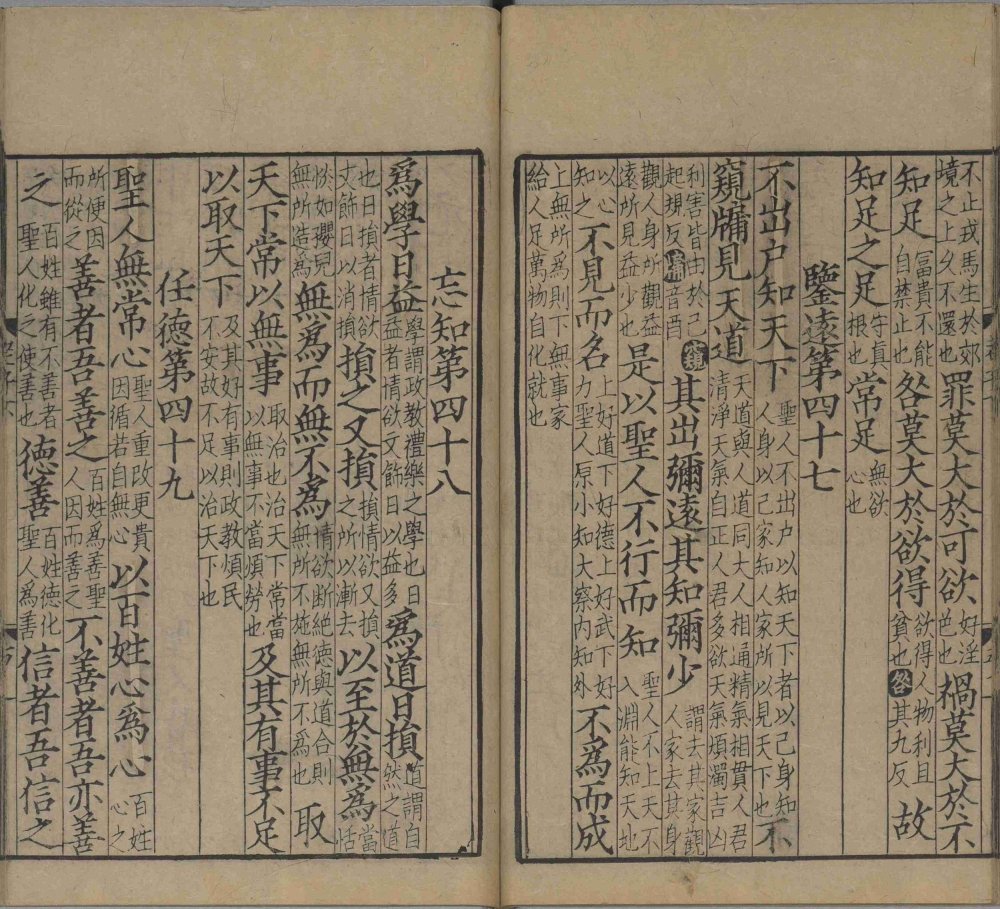 不止戎馬生於郊境之上乆不還也罪莫大於可欲好淫色也禍莫大於不
知足富貴不能自禁止也咎莫大於欲得欲得人物利且貪也咎其九反故
知足之足守真根也常足無欲心也
鑒遠第四十七
不出戶知天下聖人不出戶以知天下者以己身知人身以己家知人家所以見天下也不
窺牖見天道天道與人道同大人相通精氣相貫人君清淨天氣自正人君多欲天氣煩濁吉凶
利害皆由於己窺起規反牖音酉其出彌遠其知彌少謂去其家觀人家去其身
觀人身所觀益遠所見益少也是以聖人不行而知聖人不上天不入淵能知天地
以心知之不見而名上好道下好德上好武下好力聖人原小知大察內知外不為而成
上無所為則下無事家給人足萬物自化就也
忘知第四十八
為學日益學謂政教禮樂之學也日益者情欲文飾日以益多為道日損道謂自然之道
也日損者情欲文飾日以消損損之又損損情欲又損之所以漸去以至於無為當恬
惔如嬰兒無所造為無為而無不為情欲斷絕德與道合則無所不施無所不為也取
天下常以無事取治也治天下常當以無事不當煩勞也及其有事不足
以取天下及其好有事則政教煩民不安故不足以治天下也
任德第四十九
聖人無常心聖人重改更貴因循若自無心以百姓心為心百姓心之
所便因而從之善者吾善之百姓為善聖人因而善之不善者吾亦善
之百姓雖有不善者聖人化之使善也德善百姓德化聖人為善信者吾信之